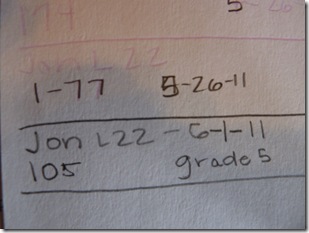 5-26
174
Jon L 22
1-77 5-26-11
Jon L22 - 6-1-11
105 grade 5